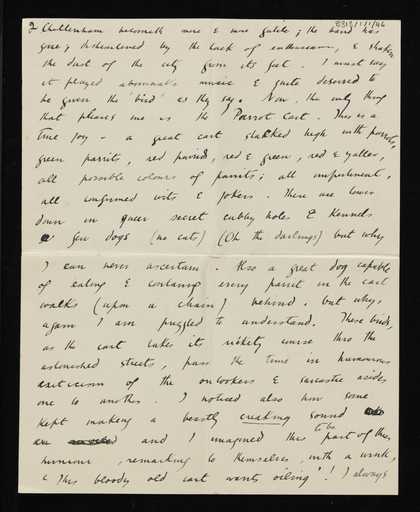 8313/1/1/46
2 Cheltenham becometh more & more futile; the band has
gone; disheartened by the lack of enthusiasm, & shaken
the dust of the city from its feet. I must say
it played abominable music & quite deserved to
be given the 'bird' as they say. Now, the only thing
that pleases me is the Parrot Cart. This is a
true joy - a great cart stacked high with parrots,
green parrits, red parrits, red & green, red & yaller,
all possible colours of parrits; all impertinent,
all confirmed wits & jokers. There are lower
down in queer secret cubby holes & kennels
few dogs (no cats) (Oh the darlings) but why
I can never ascertain. Also a great dog capable
of eating & containing every parrit in the cart
walks (upon a chain) behind. but why
again I am puzzled to understand. These birds,
as the cart takes its rickety course thro the
astonished streets, pass the time in humorous
criticism of the onlookers & sarcastic asides
one to another. I noticed also how some
kept making a beastly creaking sound
and I imagined this to be part of their
humour, remarking to themselves, with a wink,
"This bloody old cart wants oiling"! I always